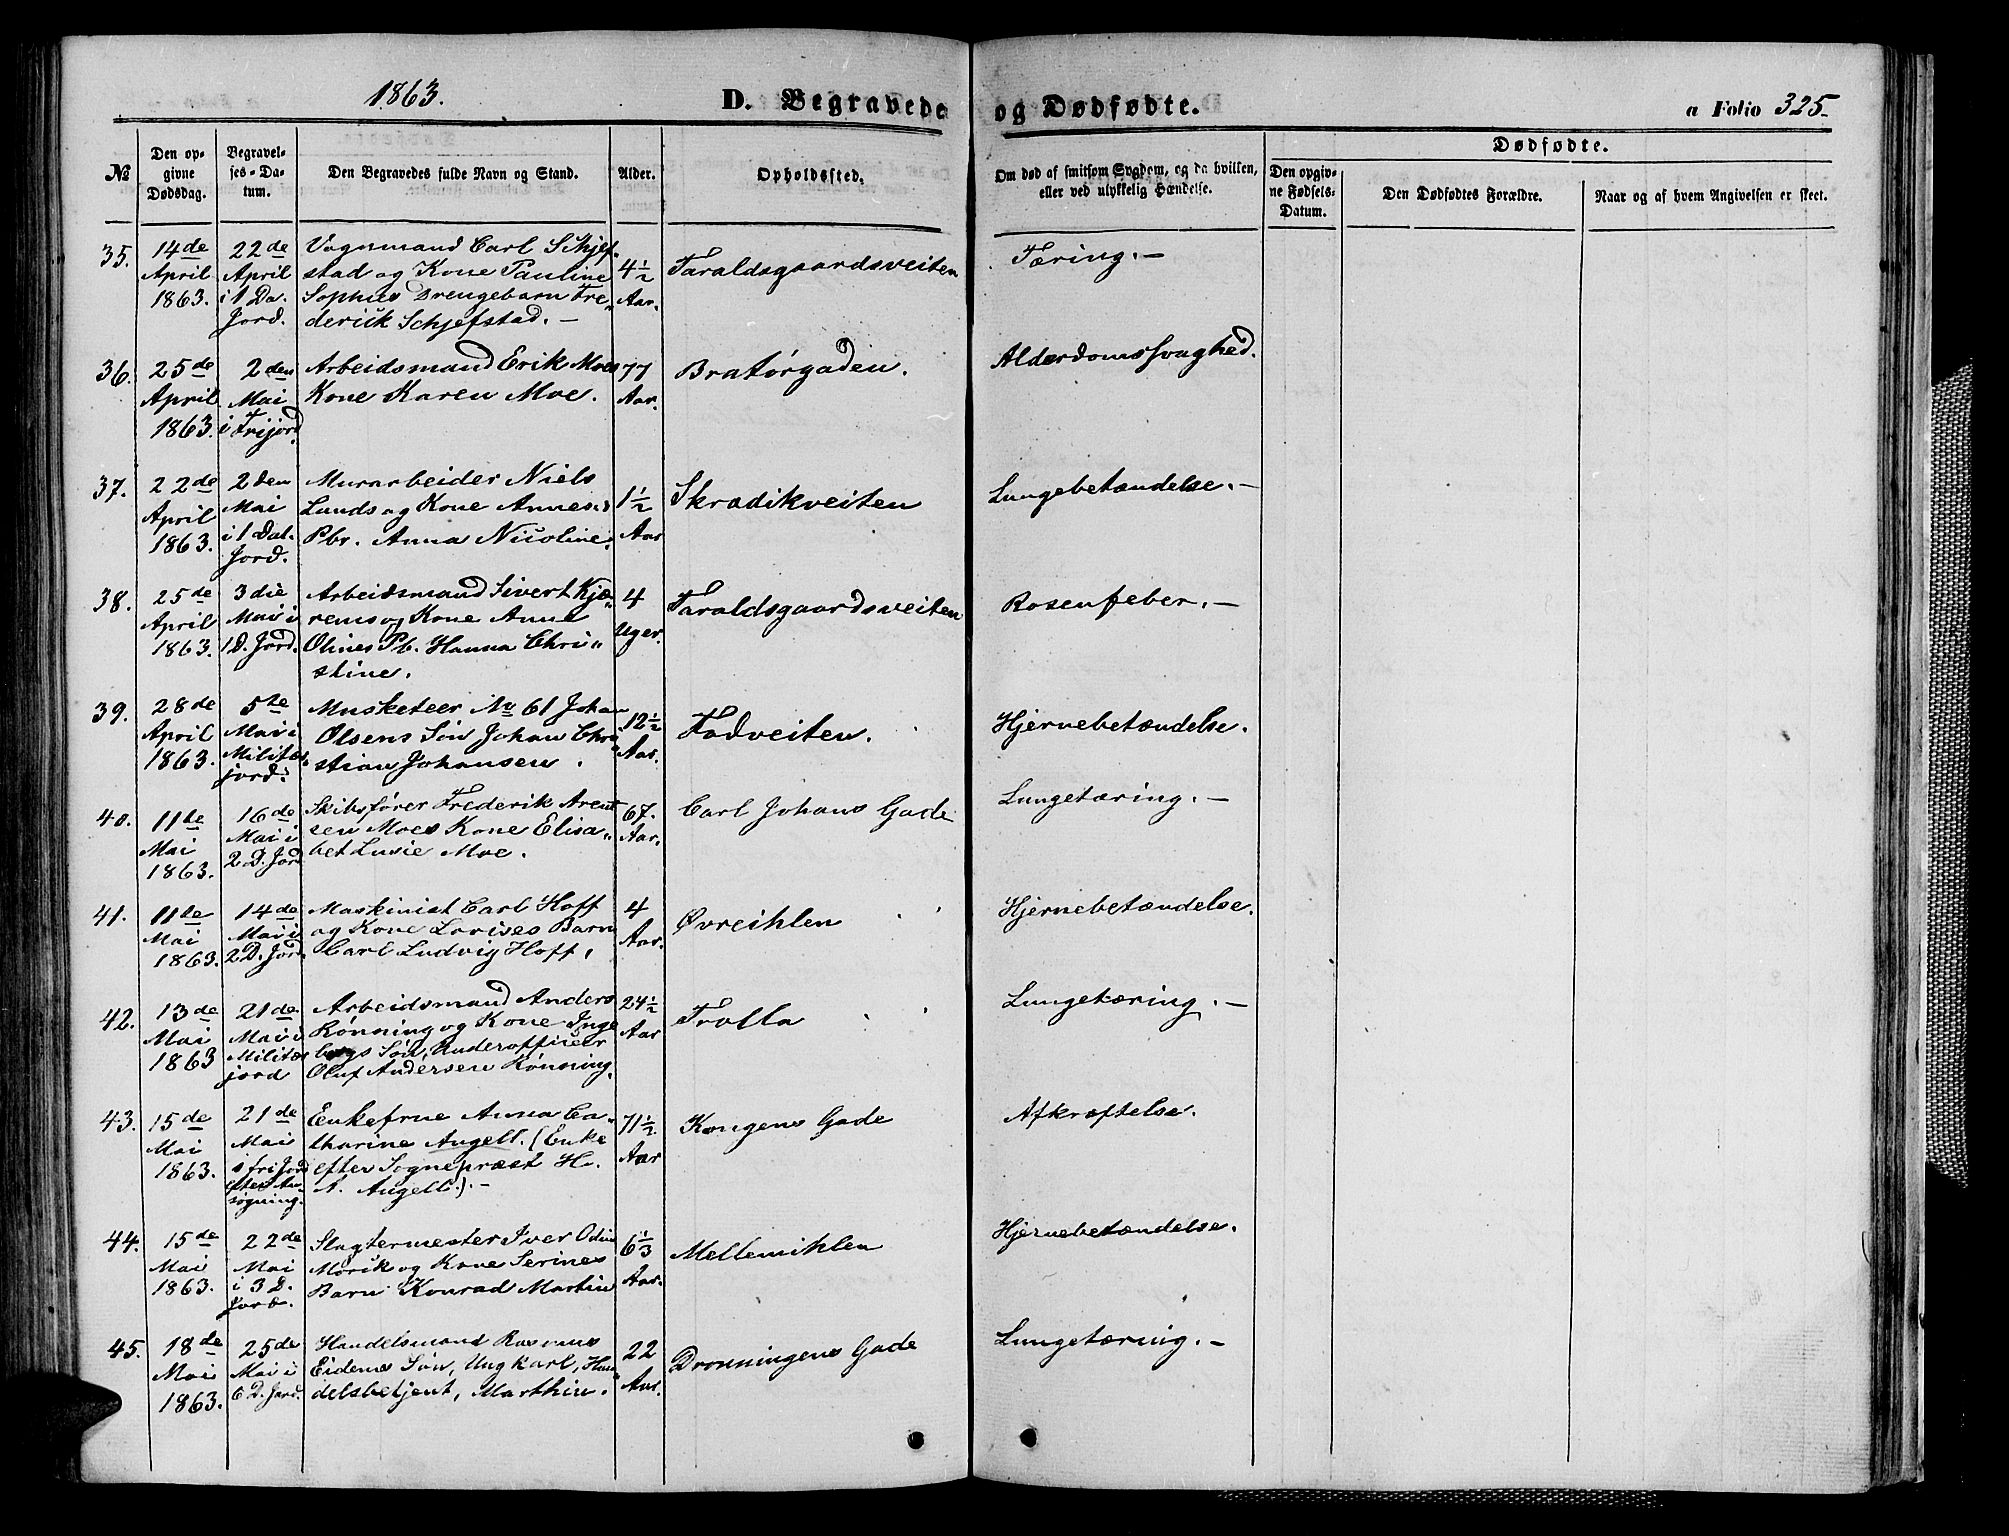 1863.
D. Begravede og Dødfødte.
a Folio 325.
Dødfødte.
№
Den op-
givne
Dødsdag.
Begravel-
ses-Da-
tum.
Den Begravedes fulde Navn og Stand.
Alder.
Opholdssted.
Om død af smitsom Sygdom, og da hvilken,
eller ved ulykkelig Hændelse.
Den opgiv-
ne Fødsels-
Datum.
Den Dødfødtes Forældre.
Naar og af hvem Angivelsen er skeet.
35.
14de
April
1863.
22de
April
i 1 Da.
Jord.
Vognmand Carl Schjef-
stad og Kone Pauline
Sophies Drengebarn Fre„
derik Schjefstad. —
4½
Aar.
Taraldsgaardsveiten
Tæring. —
36.
25de
April
1863.
2den
Mai
i Frijord.
Arbeidsmand Erik Moes
Kone Karen Moe.
77
Aar.
Bratørgaden.
Alderdomssvaghed.
37.
22de
April
1863.
2den
Mai
i 1 Dal.
Jord.
Murarbeider Niels
Lunds og Kone Annes
Pbr. Anna Nicoline.
1½
Aar
Skradikveiten
Lungebetændelse. —
38.
25de
April
1863.
3die
Mai i
1 D. Jord.
Arbeidsmand Sivert Kjæ„
rems og Kone Anne
Olines Pb. Hanna Chri„
stine.
4
Uger.
Taraldsgaardsveiten
Rosenfeber. —
39.
28de
April
1863.
5te
Mai i
Militæ„
jord.
Musketeer No 61 Johan
Olsens Søn Johan Chri„
stian Johansen.
12½
Aar.
Fadveiten.
Hjernebetændelse.
40.
11te
Mai
1863.
16de
Mai i
2 D. Jord
Skibsfører Frederik Arent
sen Moes Kone Elisa„
bet Lusie Moe.
67.
Aar.
Carl Johans Gade
Lungetæring. —
41.
11te
Mai
1863.
14de
Mai i
2 D. Jord.
Maskinist Carl Hoff
og Kone Lovises Barn
Carl Ludvig Hoff.
4
Aar.
Øvreihlen
Hjernebetændelse.
42.
13de
Mai
1863
21de
Mai i
Militæ
jord
Arbeidsmand Anders
Rønning og Kone Inge
borgs Søn, Underofficeer
Oluf Andersen Rønning.
24½
Aar
Trolla
Lungetæring. —
43.
15de
Mai
1863.
21de
Mai
i fri Jord
efter An„
søgning.
Enkefrue Anna Ca„
tharine Angell. (Enke
efter Sognepræst H.
A. Angell.). —
71½
Aar
Kongens Gade
Afkræftelse.
44.
15de
Mai
1863.
22de
Mai
i 3 D.
Jord.
Slagtermester Iver Odin
Mørik og Kone Serines
Barn Konrad Martin
6⅓
Aar.
Mellemihlen
Hjernebetændelse.
45.
18de
Mai
1863.
25de
Mai i
6 D. Jord.
Handelsmand Rasmus
Eidems Søn, Ungkarl, Han„
delsbetjent, Marthin.
22
Aar.
Dronningens Gade
Lungetæring. —